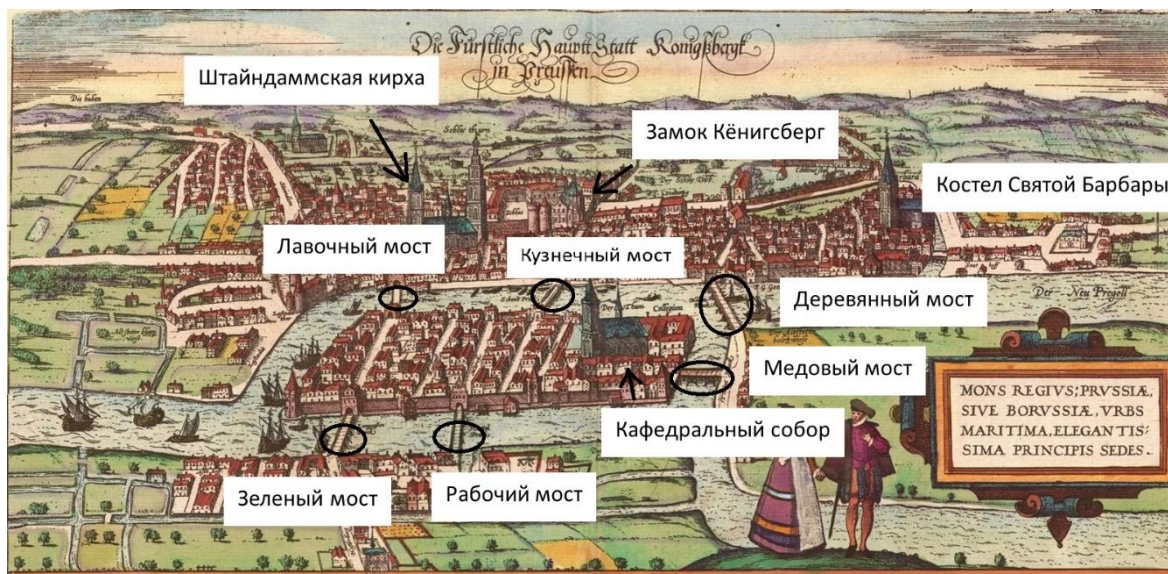 Die Fürstliche Hauptt Statt Königßbergk
in Preussen.
Штайндаммская кирха
Замок Кёнигсберг
Костел Святой Барбары
Лавочный мост
Кузнечный мост
Деревянный мост
Der Neu Pregell
Медовый мост
Кафедральный собор
MONS REGIVS; PRVSSIÆ,
SIVE BORVSSIÆ, VRBS
MARITIMA, ELEGANTIS-
SIMA PRINCIPIS SEDES.
Зеленый мост
Рабочий мост